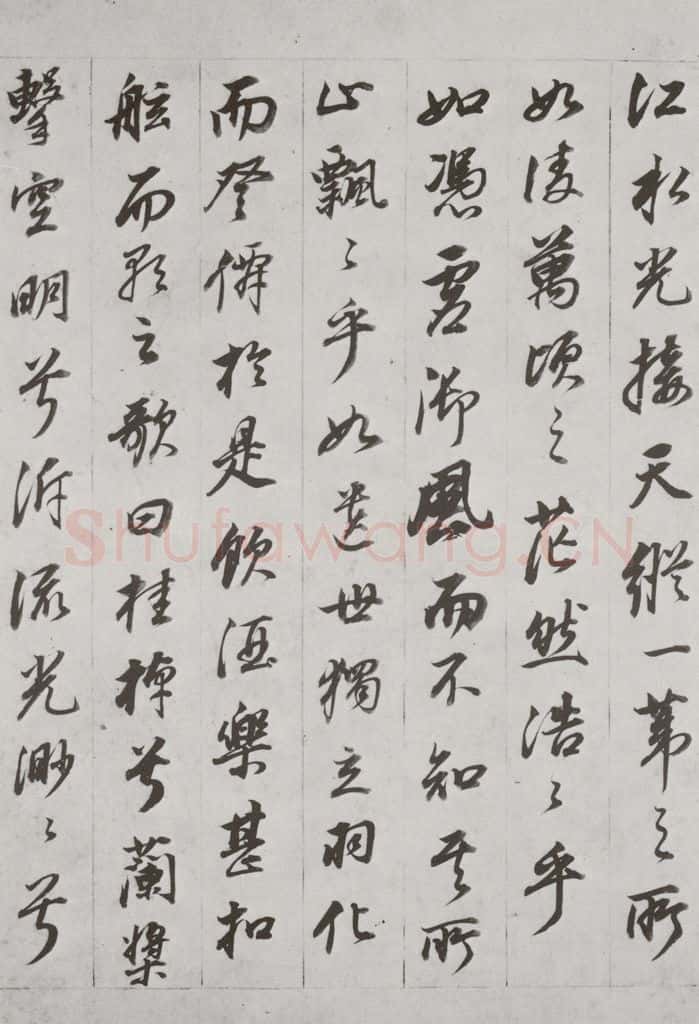 江水光接天縱一葦之所
如淩萬頃之茫然浩〻乎
如憑虛御風而不知其所
止飄〻乎如遺世獨立羽化
而登僊於是飲酒樂甚扣
舷而歌之歌曰桂棹兮蘭槳
擊空明兮泝流光渺〻兮
Shufawang.CN